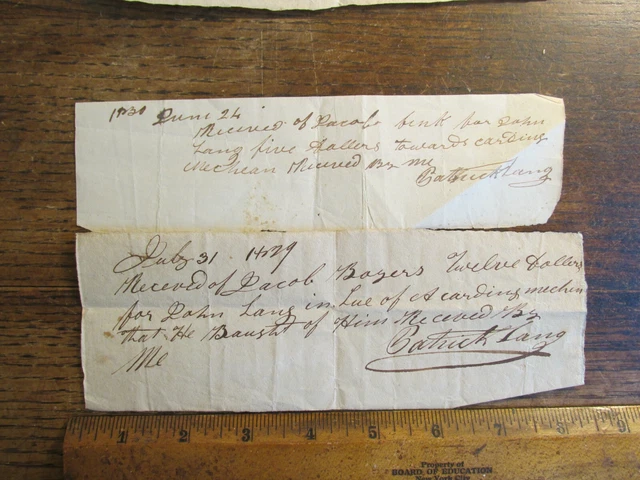 1830 June 24
Received of Jacob bink for John
Lang five dollers towards carding
mechean Received By me
Patrick Lang
July 31 1829
Receved of Jacob Boyers Twelve dollers
for John Lang in Lue of A carding mechen
that He Baught of Him Receved By
Me Patrick Lang
1 2 3 4 5 6 7 8 9
Property of
BOARD OF EDUCATION
New York City